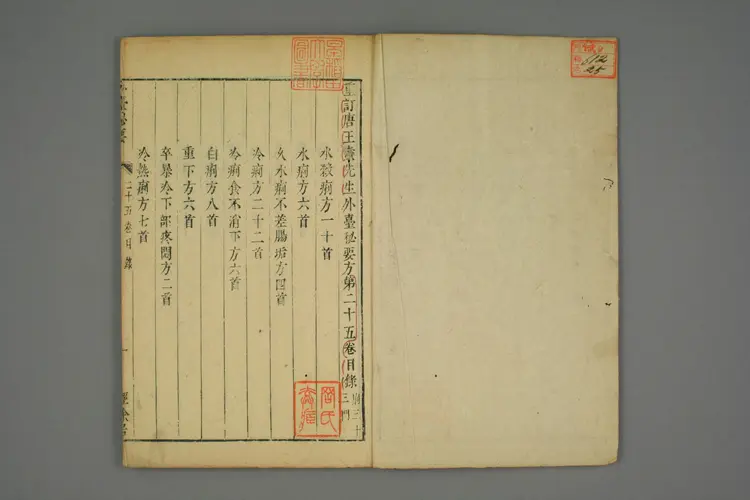 重訂唐王燾先生外臺祕要方第二十五卷目錄 痢三十三門
水穀痢方一十首
水痢方六首
久水痢不差腸垢方四首
冷痢方二十二首
冷痢食不消下方六首
白痢方八首
重下方六首
卒暴冷下部疼悶方二首
冷熱痢方七首
外臺祕要
二十五卷目錄
一
經餘居
612
25